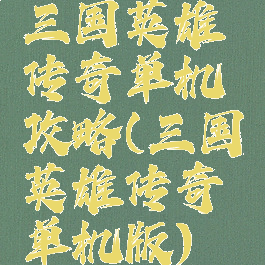 三国英雄
传奇单机
攻略(三国
英雄传奇
单机版)